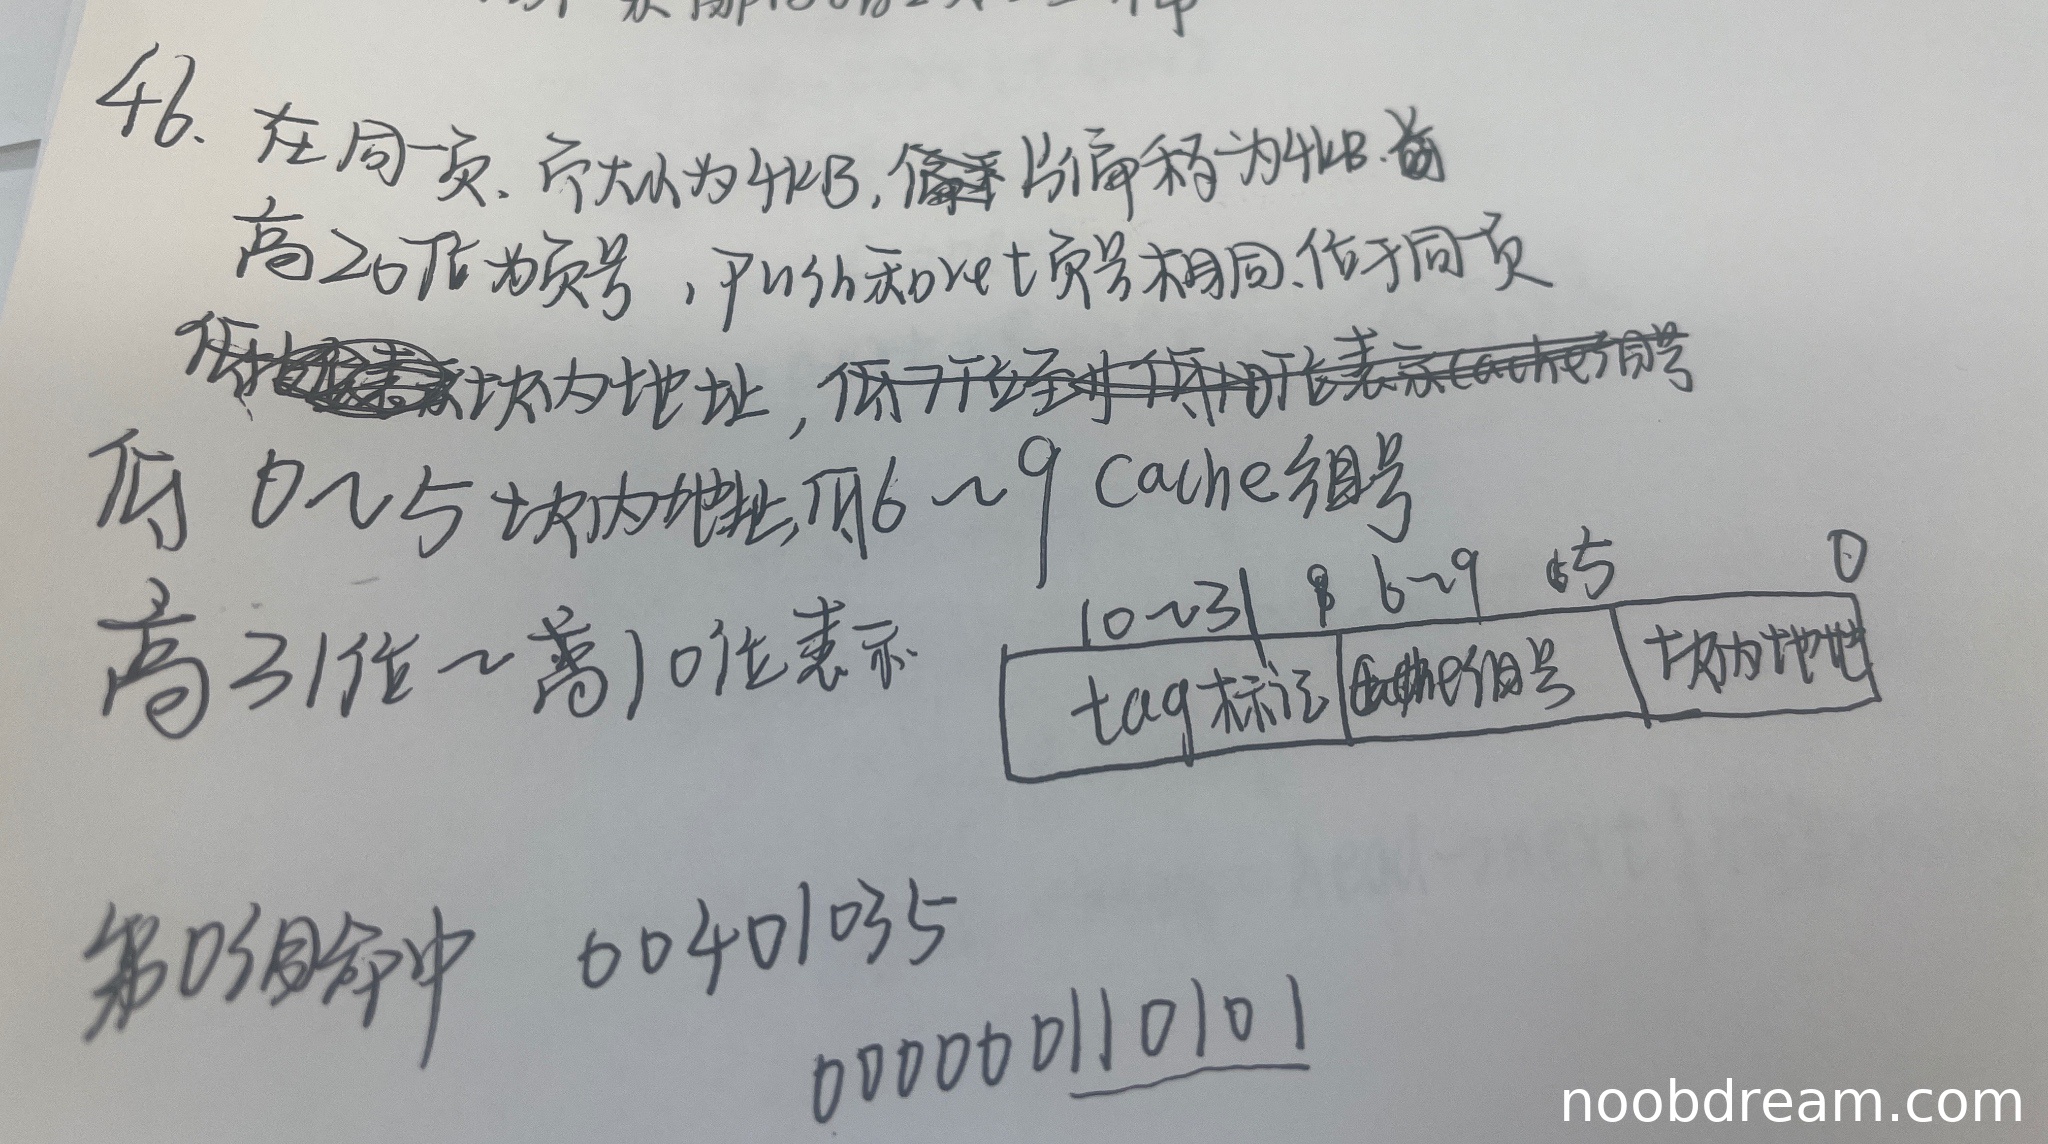 46.
在同一页.页大小为4KB,页偏移为4KB.
高20位为页号,push和ret页号相同.位于同一页
块内地址,低7位至低10位表示cache组号
低 0~5 块内地址,低6~9 Cache组号
10~31 6~9 5 0
高31位~高10位表示
tag标记 Cache组号 块内地址
第0组命中 00401035
000000110101
noobdream.com